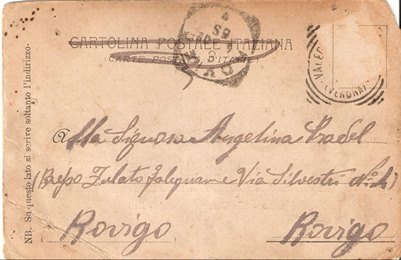 CARTOLINA POSTALE ITALIANA
(CARTE POSTALE D'ITALIE)
NB. Su questo lato si scrive soltanto l'indirizzo.
VALEG
(VERONA)
Alla Signora Angelina
(Presso Zulato falegname Via Silvestri
Rovigo Rovigo